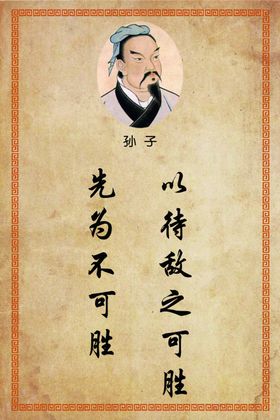 孙子
先为不可胜
以待敌之可胜